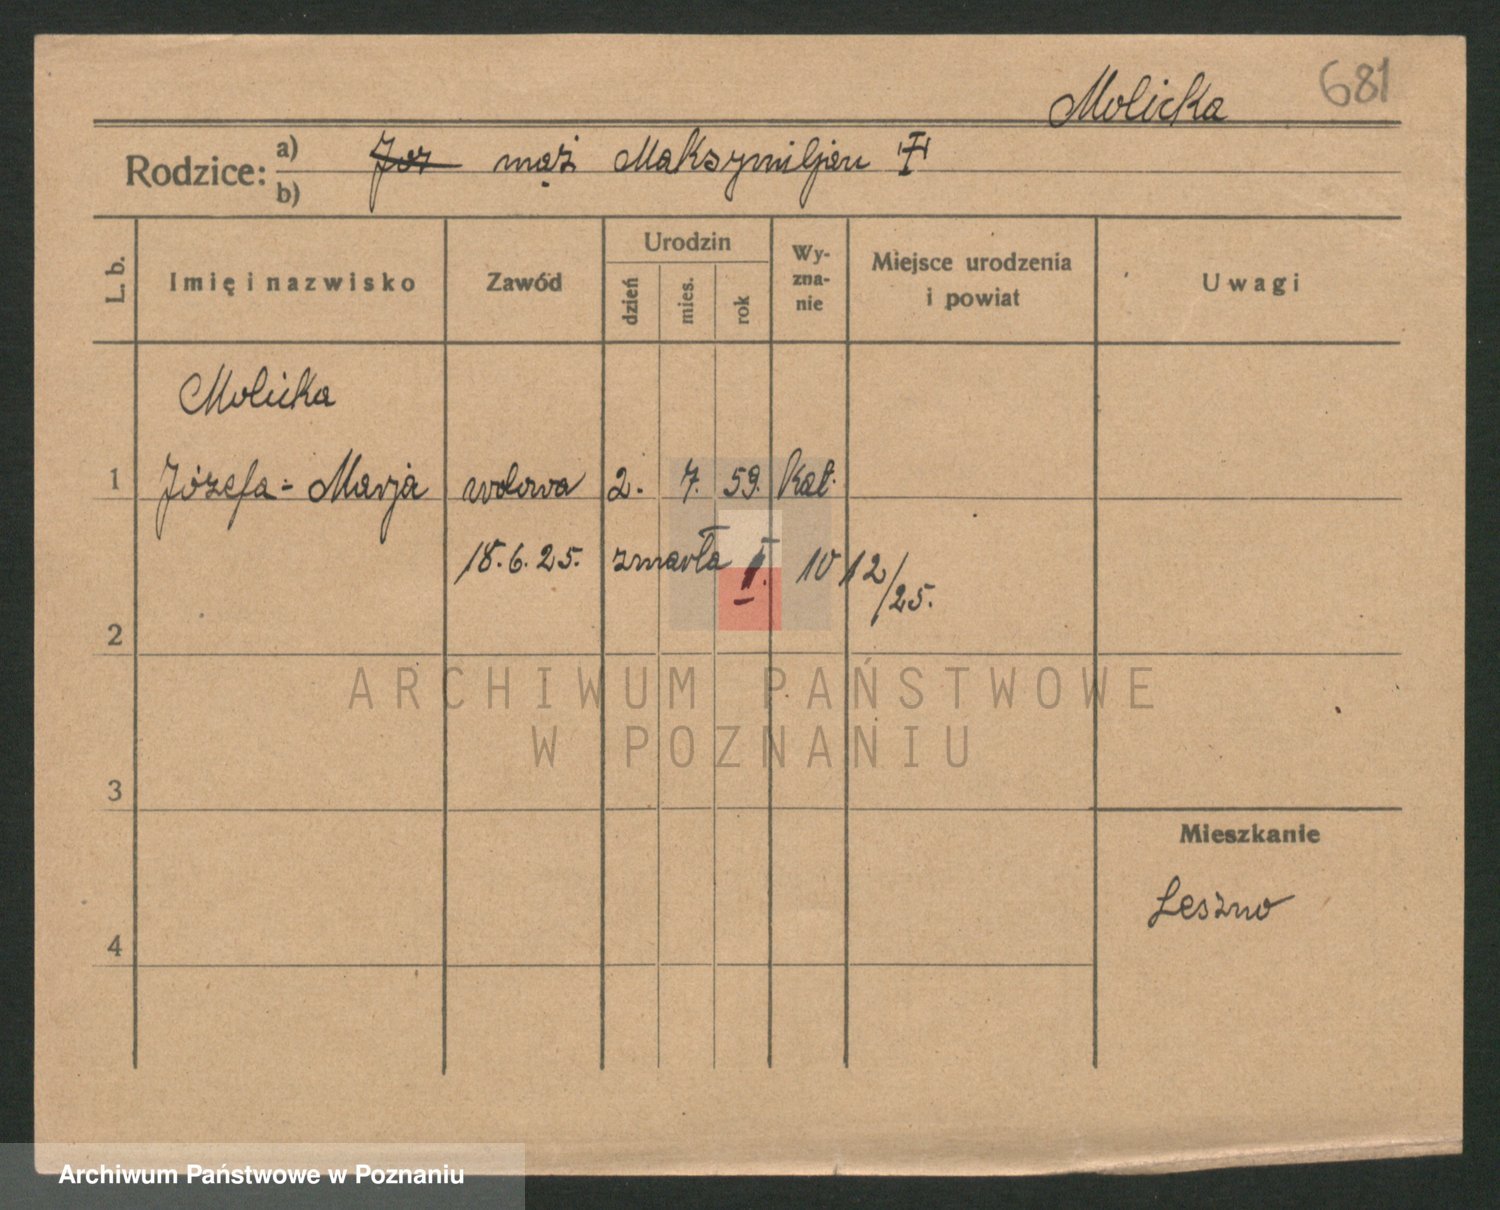 681
Molicka
Rodzice: a) Joz mąż Maksymiljan
b)
L. b. Imię i nazwisko Zawód Urodzin dzień mies. rok Wyznanie Miejsce urodzenia i powiat Uwagi
Molicka
1 Józefa - Marja wdowa 2. 7. 59. kat.
18.6.25. zmarła 10 12/25.
2
ARCHIWUM PAŃSTWOWE
W POZNANIU
3
Mieszkanie
Leszno
4
Archiwum Państwowe w Poznaniu